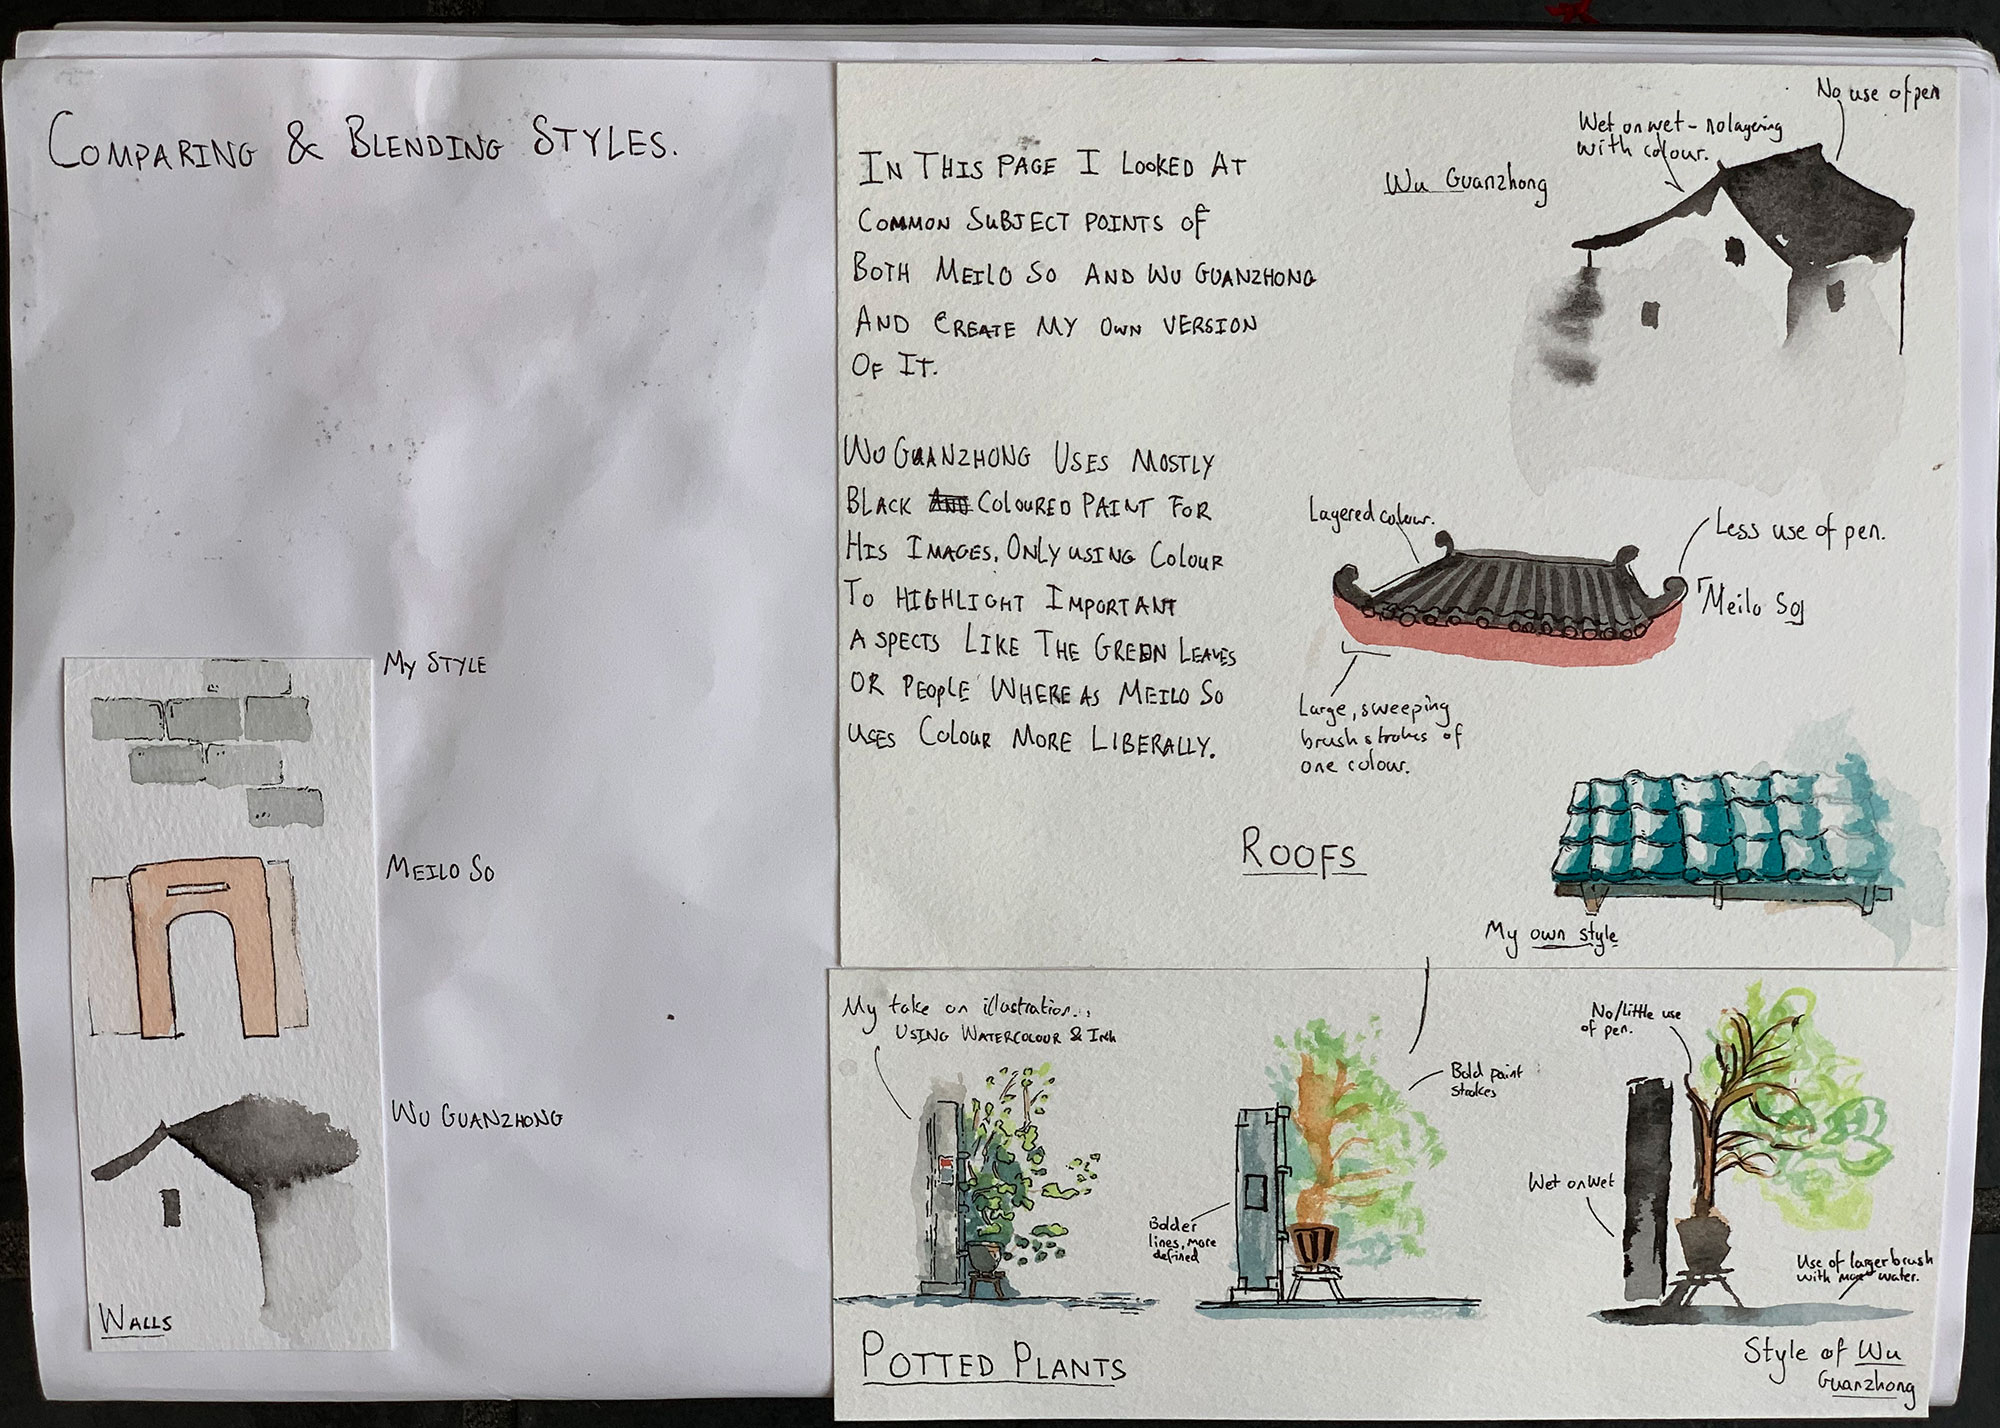 COMPARING & BLENDING STYLES.
MY STYLE
MEILO SO
WU GUANZHONG
WALLS
IN THIS PAGE I LOOKED AT
COMMON SUBJECT POINTS OF
BOTH MEILO SO AND WU GUANZHONG
AND CREATE MY OWN VERSION
OF IT.
WU GUANZHONG USES MOSTLY
BLACK AND COLOURED PAINT FOR
HIS IMAGES. ONLY USING COLOUR
TO HIGHLIGHT IMPORTANT
ASPECTS LIKE THE GREEN LEAVES
OR PEOPLE WHERE AS MEILO SO
USES COLOUR MORE LIBERALLY.
No use of pen
Wet on wet - no layering
with colour.
Wu Guanzhong
Layered colour.
Less use of pen.
Meilo So
Large, sweeping
brush strokes of
one colour.
ROOFS
My own style
My take on illustration...
USING WATERCOLOUR & Ink
Bold paint
strokes
Bolder
lines, more
defined
No/little use
of pen.
Wet on wet
Use of larger brush
with more water.
POTTED PLANTS
Style of Wu
Guanzhong